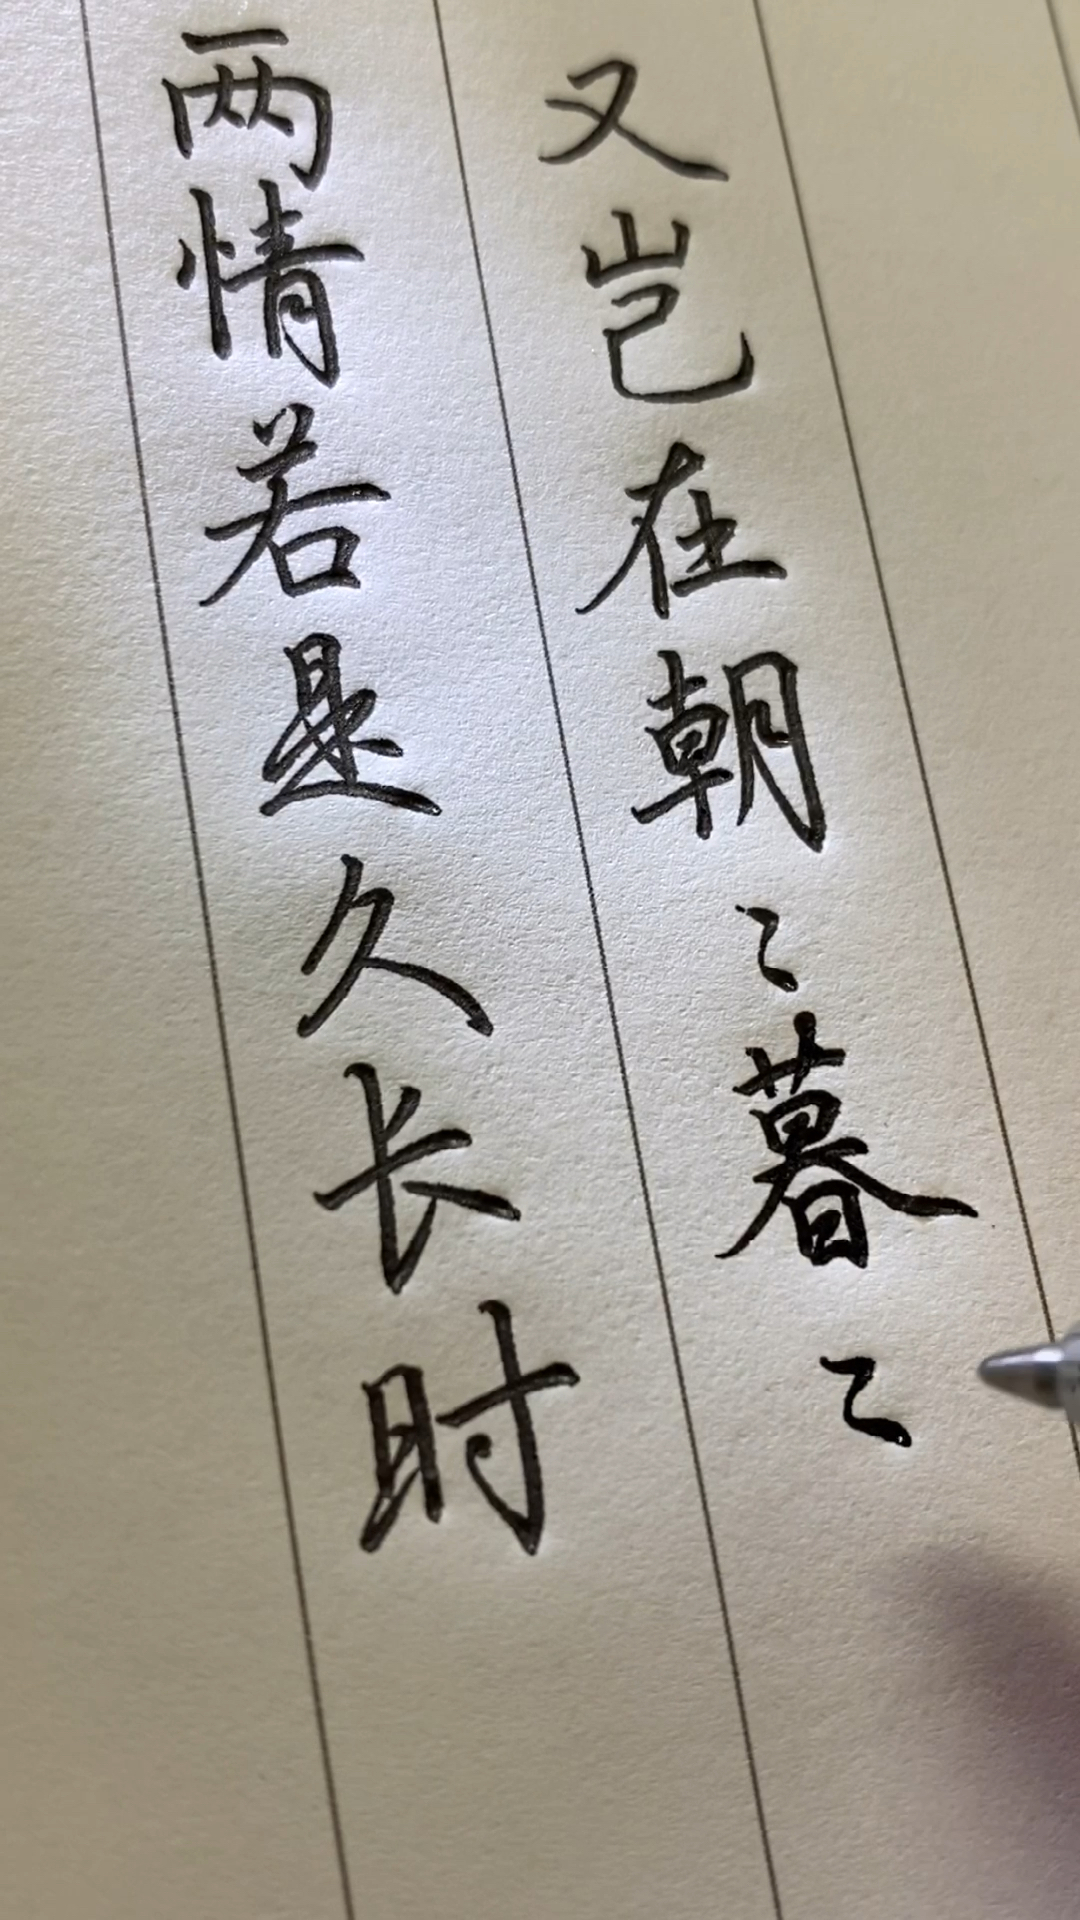 两情若是久长时
又岂在朝々暮々